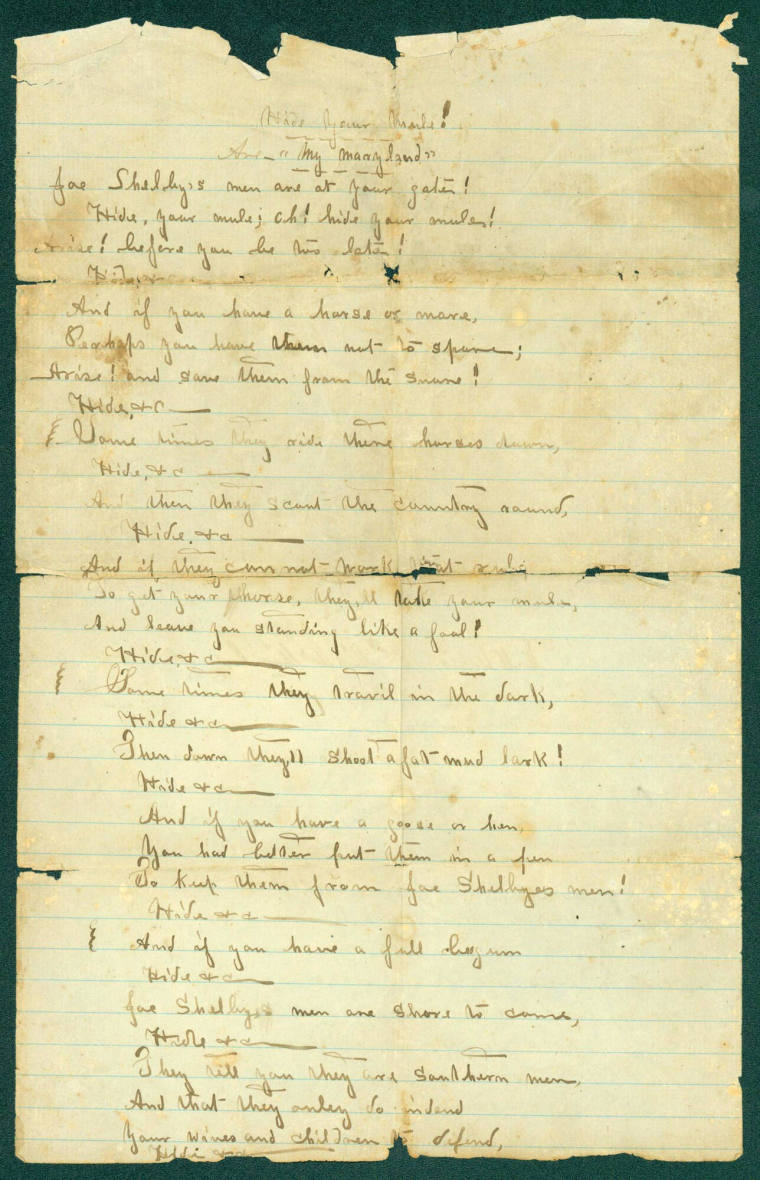 Hide Your Mule!
Air - "My Maryland"
Joe Shelby,s men are at your gate!
Hide, your mule; oh! hide your mules!
Arise! before you be too late!
Hide, &c
And if you have a horse or mare,
Perhaps you have them not to spare;
Arise! and save them from the snare!
Hide, &c
Some times they ride there horses down,
Hide, &c
And then they scout the country round,
Hide, &c
And if they can not work that rule
To get your horse, they,ll take your mule,
And leave you standing like a fool!
Hide, &c
Some times they travil in the dark,
Hide &c
Then down they,ll shoot a fat mud lark!
Hide &c
And if you have a goose or hen,
You had better put them in a pen
To keep them from Joe Shelbyes men!
Hide &c
And if you have a full begum
Hide &c
Joe Shelby,s men are shore to come,
Hide &c
They tell you they are southern men,
And that they onley do indend
Your wives and children to difend,
Hide &c